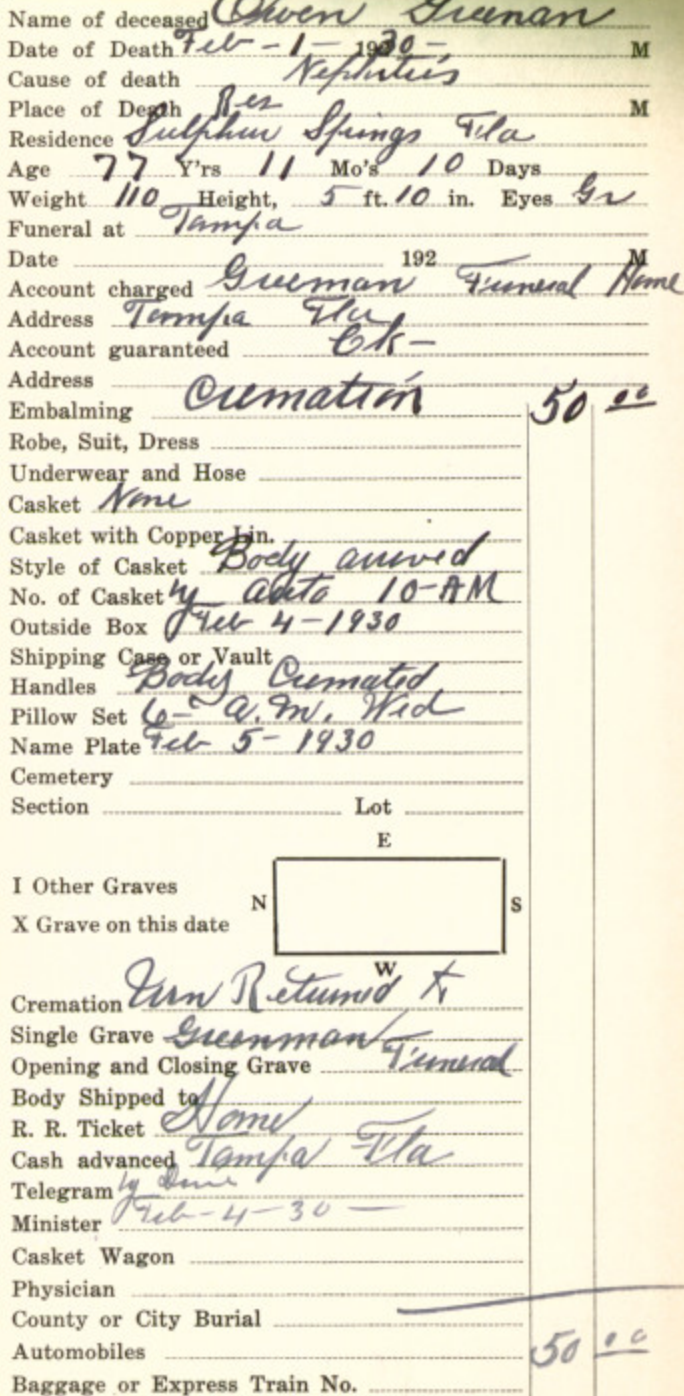 Name of deceased Owen Greenan
Date of Death Feb - 1 - 1930 - M
Cause of death Nephritis
Place of Death Res M
Residence Sulphur Springs Fla
Age 77 Y'rs 11 Mo's 10 Days
Weight 110 Height, 5 ft. 10 in. Eyes Gr
Funeral at Tampa
Date 192 M
Account charged Greenman Funeral Home
Address Tampa Fla
Account guaranteed Ok-
Address
Embalming Cremation 50 00
Robe, Suit, Dress
Underwear and Hose
Casket None
Casket with Copper Lin.
Style of Casket Body arrived
No. of Casket by auto 10-AM
Outside Box Feb 4-1930
Shipping Case or Vault
Handles Body Cremated
Pillow Set 6- A.M. Wed
Name Plate Feb 5-1930
Cemetery
Section Lot
E
I Other Graves
N S
X Grave on this date
W
Cremation Urn Returned to
Single Grave Greenman
Opening and Closing Grave Funeral
Body Shipped to
R. R. Ticket Home
Cash advanced Tampa Fla
Telegram by
Minister Feb-4-30-
Casket Wagon
Physician
County or City Burial
Automobiles 50 00
Baggage or Express Train No.